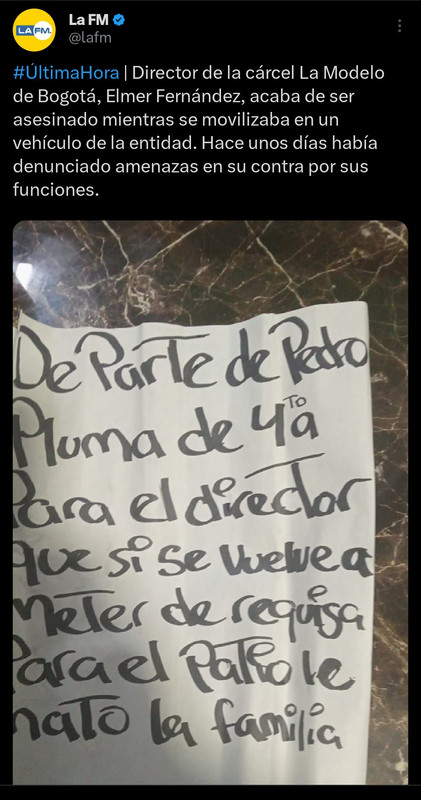 La FM
@lafm
LA FM.
#ÚltimaHora | Director de la cárcel La Modelo
de Bogotá, Elmer Fernández, acaba de ser
asesinado mientras se movilizaba en un
vehículo de la entidad. Hace unos días había
denunciado amenazas en su contra por sus
funciones.
De Parte de Pedro
Pluma de 4ta
Para el director
que si se vuelve a
meter de requisa
Para el Patio le
mato la familia